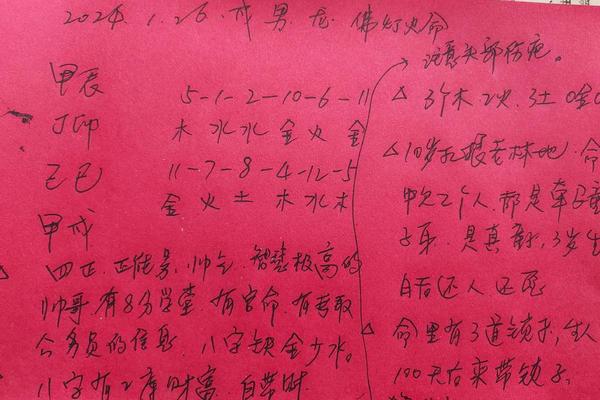 2024.1.26.戌男.龙.佛灯火命
注意头部伤疤。
甲辰
丁卯
己巳
甲戌
5-1-2-10-6-11
木水水金火金
11-7-8-4-12-5
金火土木水木
四正.正能量.帅气.智慧极高的
帅哥.有8分学堂.有官命.有考取
公务员的信息.八字缺金少水。
八字有2库财富.自带财
△3个木.2火.3土.0金0
△10岁扎根老林地.命
中欠2个人.都是牵
子来.是真童子,3岁生
日后还人还愿
△命里有3道锁子,生人
100天后来带锁子.